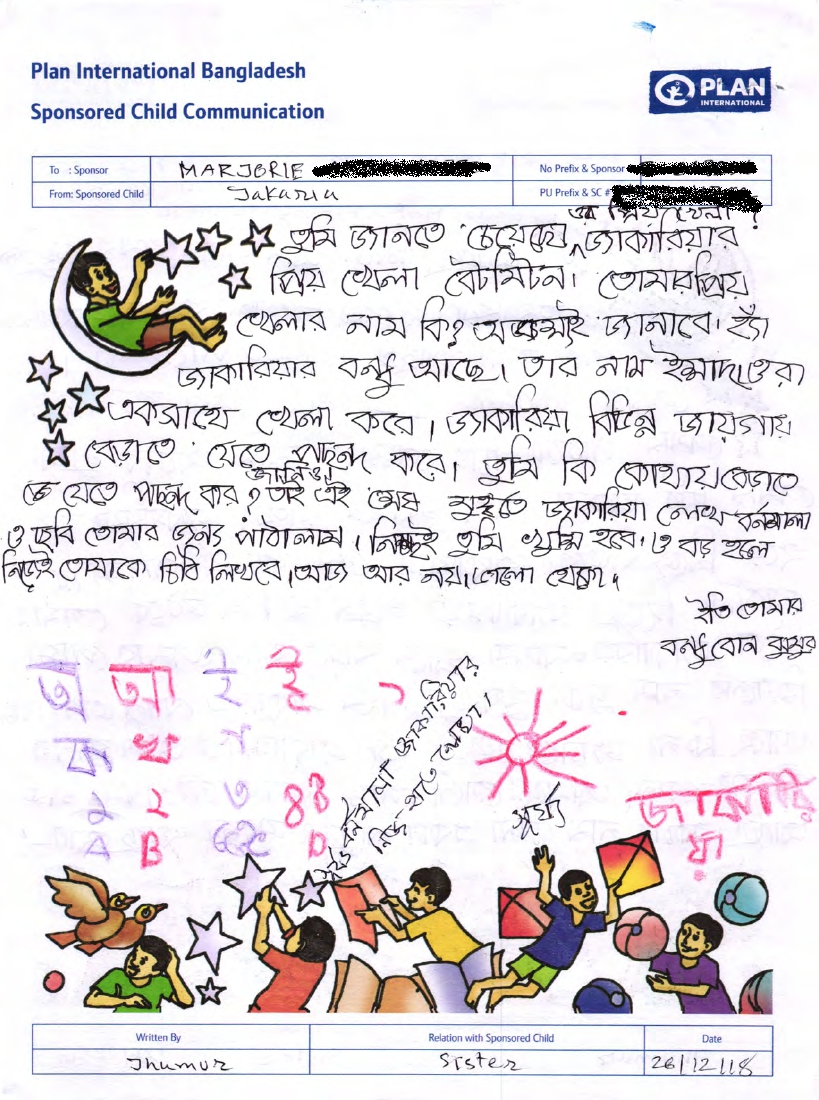 Plan International Bangladesh
Sponsored Child Communication
PLAN
INTERNATIONAL
To : Sponsor MARJORIE No Prefix & Sponsor
From: Sponsored Child Jakaria PU Prefix & SC #
এর প্রিয় খেলা ?
তুমি জানতে চেয়েছো জ্যাকারিয়ার
প্রিয় খেলা বেটমিটন। তোমার প্রিয়
খেলার নাম কি? অবশ্যই জানাবে। হ্যাঁ
জ্যাকারিয়ার বন্ধু আছে। তার নাম ইম্মাদ। ওরা
একসাথে খেলা করে। জ্যাকারিয়া বিভিন্ন জায়গায়
বেড়াতে যেতে পছন্দ করে। তুমি কি কোথায় বেড়াতে
জানিও।
যেতে পছন্দ কর? তাই এই শেষ মুহুর্তে জ্যাকারিয়া লেখে বর্নমালা
ও ছবি তোমার জন্য পাঠালাম। নিশ্চই তুমি খুশি হবে। ও বড় হলে
নিজেই তোমাকে চিঠি লিখবে। আজ আর নয়।
ইতি তোমার
বন্ধু বোন ঝুমুর
অ আ ই ঈ
ক খ গ
১ ২ ৩ ৪ 8
A B C D
বর্নমালা জ্যাকারিয়ার
নিজ হাতে লেখা।
সূর্য্য
জাকারি
য়া
Written By Relation with Sponsored Child Date
Jhumur Sister 26/12/18